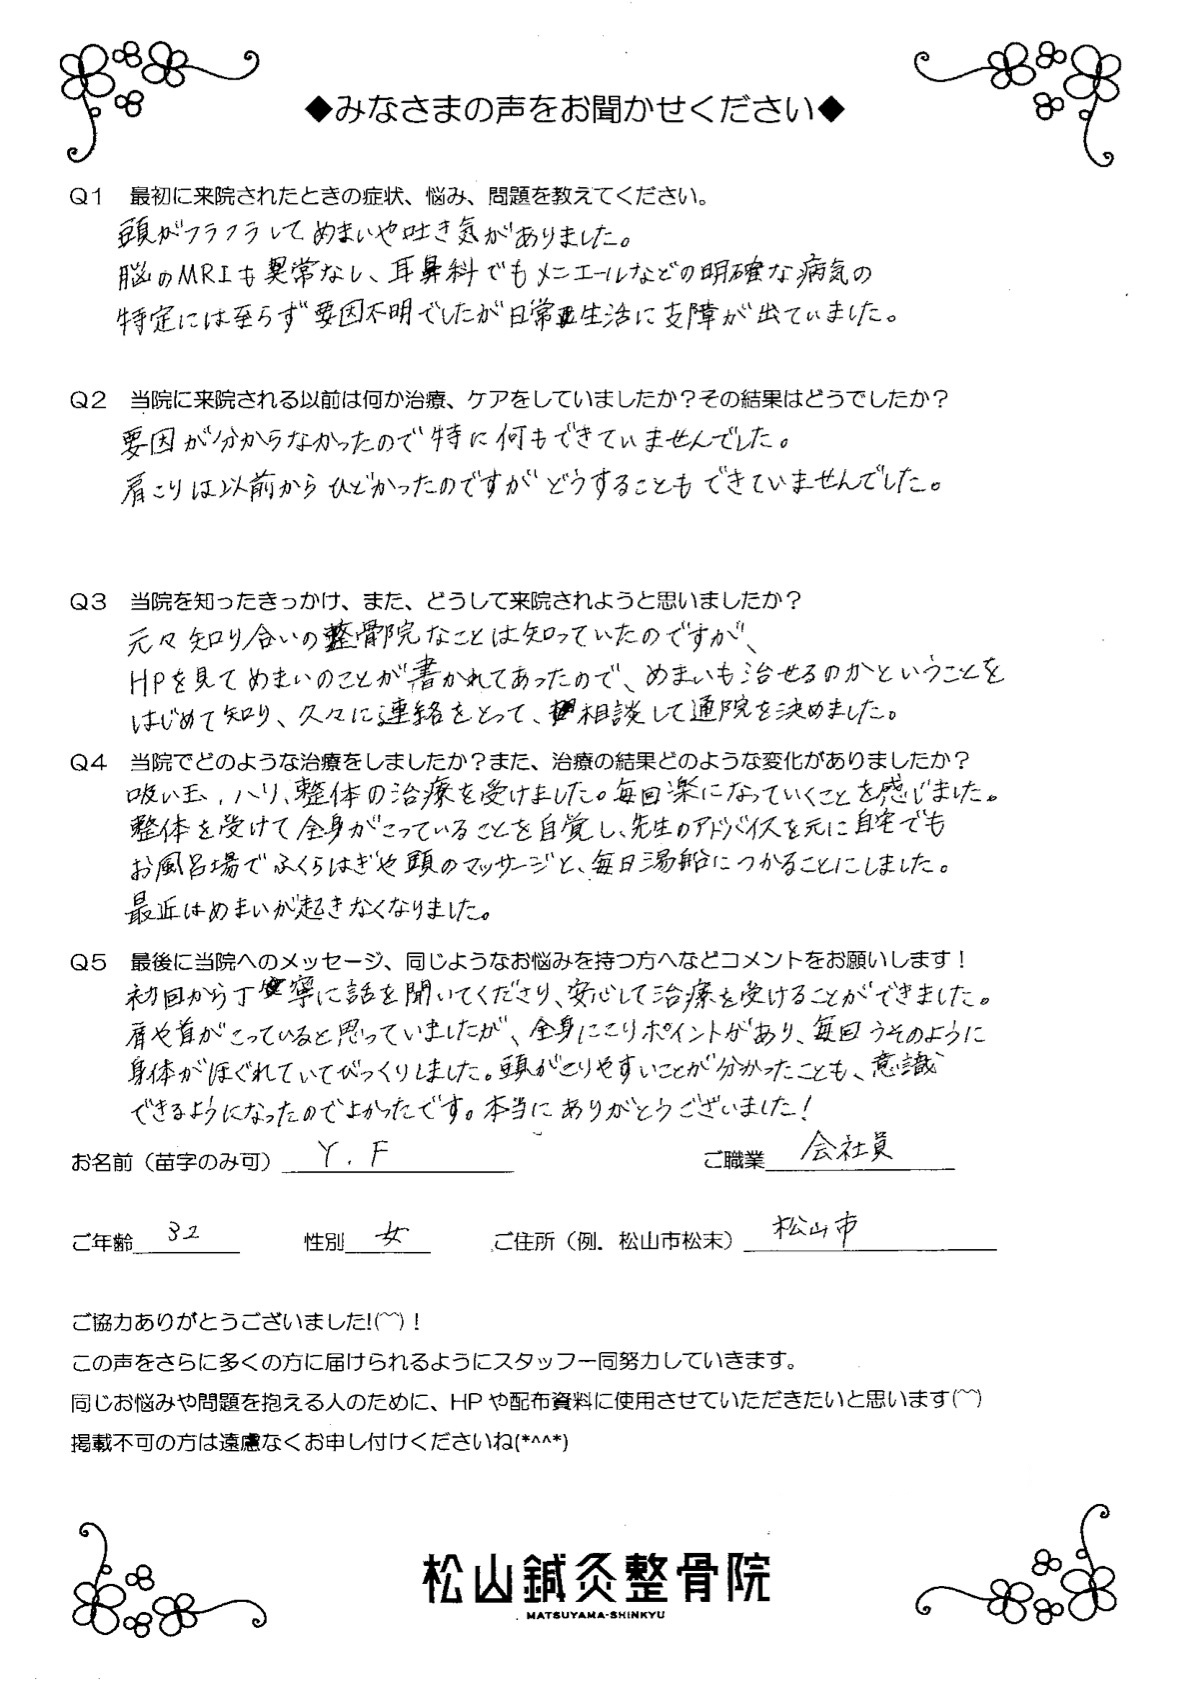 ◆みなさまの声をお聞かせください◆
Q1 最初に来院されたときの症状、悩み、問題を教えてください。
頭がフラフラしてめまいや吐き気がありました。
脳のMRIも異常なし、耳鼻科でもメニエールなどの明確な病気の
特定には至らず要因不明でしたが日常生活に支障が出ていました。
Q2 当院に来院される以前は何か治療、ケアをしていましたか？その結果はどうでしたか？
要因が分からなかったので特に何もできていませんでした。
肩こりは以前からひどかったのですがどうすることもできていませんでした。
Q3 当院を知ったきっかけ、また、どうして来院されようと思いましたか？
元々知り合いの整骨院なことは知っていたのですが、
HPを見てめまいのことが書かれてあったので、めまいも治せるのかということを
はじめて知り、久々に連絡をとって、相談して通院を決めました。
Q4 当院でどのような治療をしましたか？また、治療の結果どのような変化がありましたか？
吸い玉、ハリ、整体の治療を受けました。毎回楽になっていくことを感じました。
整体を受けて全身がこっていることを自覚し、先生のアドバイスを元に自宅でも
お風呂場でふくらはぎや頭のマッサージと、毎日湯船につかることにしました。
最近はめまいが起きなくなりました。
Q5 最後に当院へのメッセージ、同じようなお悩みを持つ方へなどコメントをお願いします！
初回から丁寧に話を聞いてくださり、安心して治療を受けることができました。
肩や首がこっていると思っていましたが、全身にこりポイントがあり、毎回うそのように
身体がほぐれていてびっくりしました。頭がこりやすいことが分かったことも、意識
できるようになったのでよかったです。本当にありがとうございました！
お名前（苗字のみ可） Y.F ご職業 会社員
ご年齢 32 性別 女 ご住所（例．松山市松末） 松山市
ご協力ありがとうございました!(⌒⌒)！
この声をさらに多くの方に届けられるようにスタッフ一同努力していきます。
同じお悩みや問題を抱える人のために、HPや配布資料に使用させていただきたいと思います(⌒⌒)
掲載不可の方は遠慮なくお申し付けくださいね(*^^*)
松山鍼灸整骨院
MATSUYAMA-SHINKYU